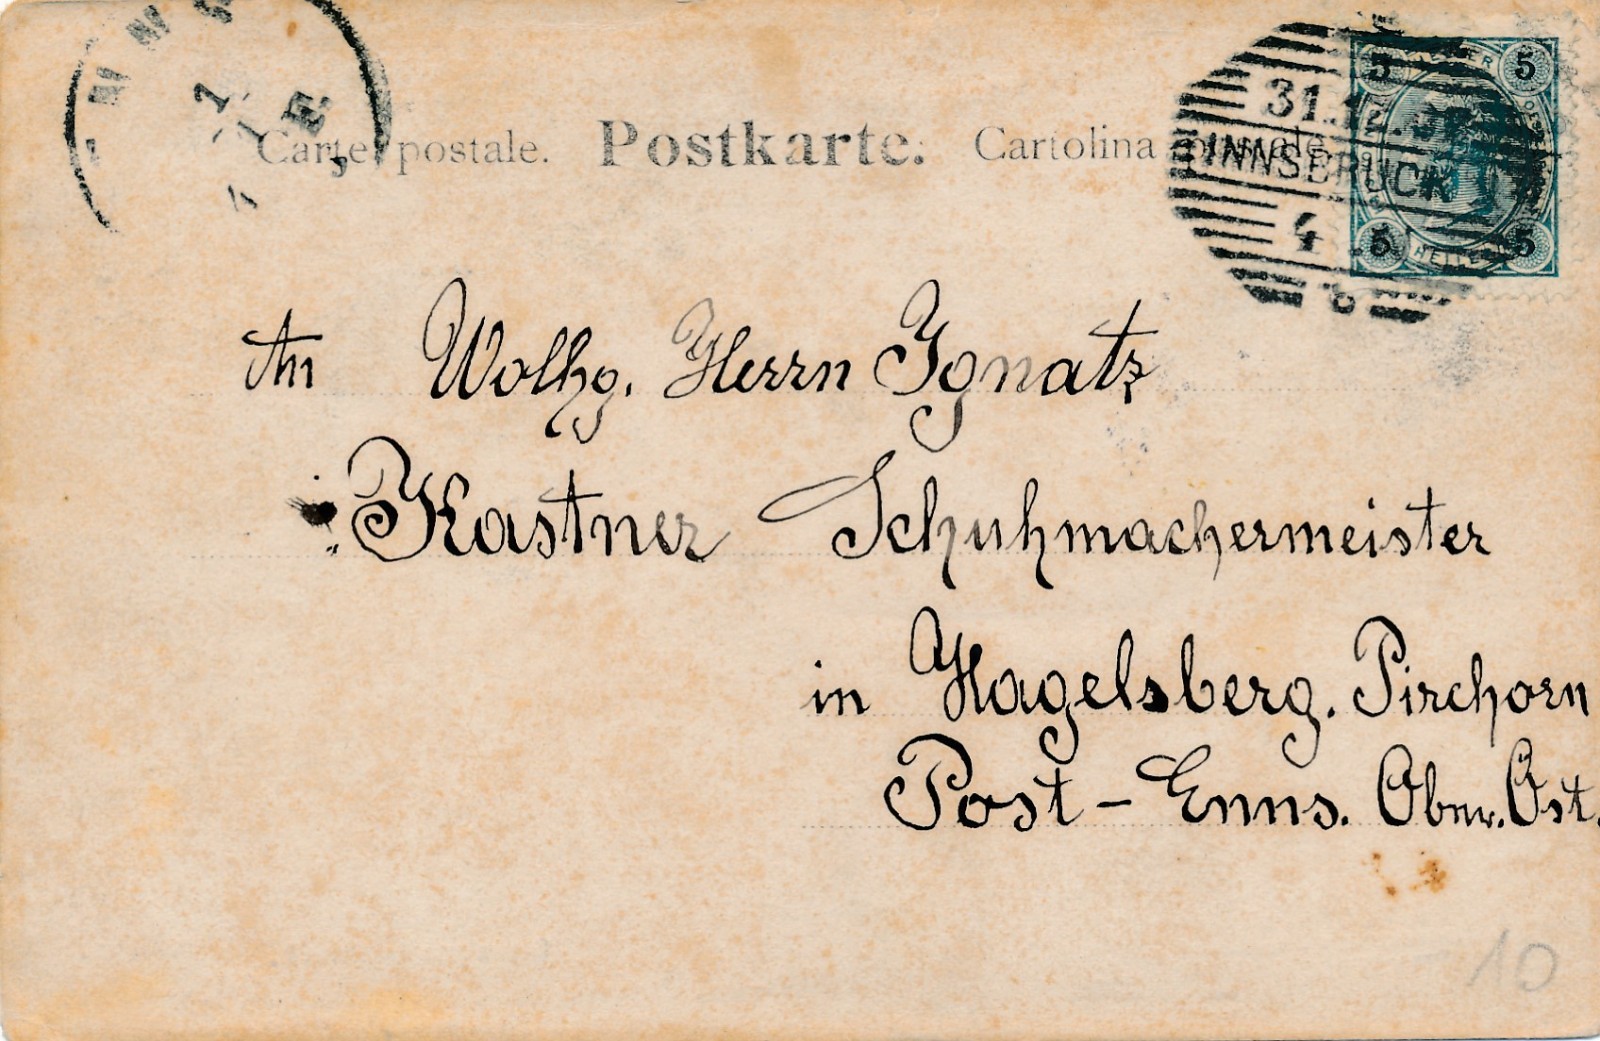 Carte postale. Postkarte. Cartolina postale
31.
INNSBRUCK
4
5 5
5 HELLER 5
An Wolhg. Herrn Ignatz
Kastner Schuhmachermeister
in Hagelsberg. Pirchorn
Post - Enns. Ober. Öst.
10